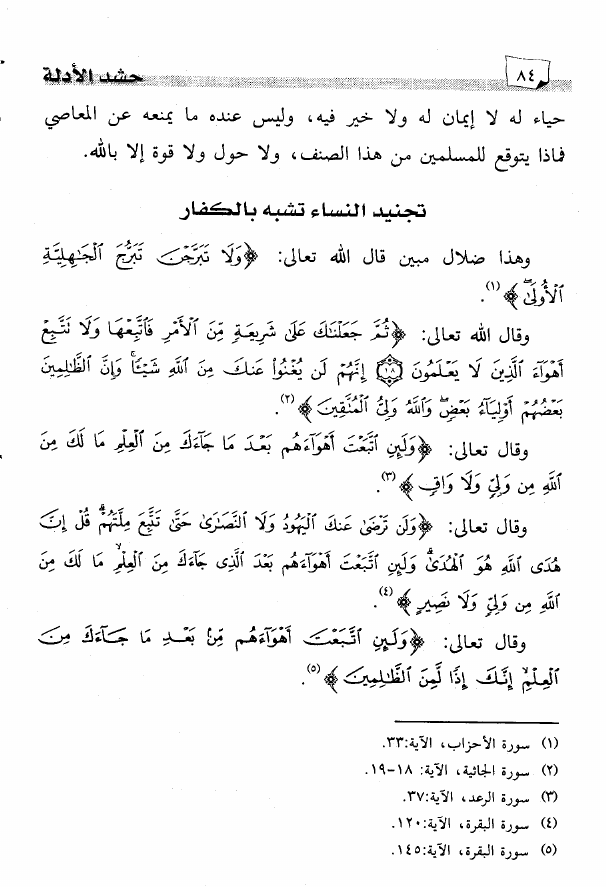 ٨٤
حشد الأدلة
حياء له لا إيمان له ولا خير فيه، وليس عنده ما يمنعه عن المعاصي
فماذا يتوقع للمسلمين من هذا الصنف، ولا حول ولا قوة إلا بالله.
تجنيد النساء تشبه بالكفار
وهذا ضلال مبين قال الله تعالى: ﴿وَلَا تَبَرَّجْنَ تَبَرُّجَ ٱلْجَٰهِلِيَّةِ
ٱلْأُولَىٰ﴾(١).
وقال الله تعالى: ﴿ثُمَّ جَعَلْنَٰكَ عَلَىٰ شَرِيعَةٍ مِّنَ ٱلْأَمْرِ فَٱتَّبِعْهَا وَلَا تَتَّبِعْ
أَهْوَآءَ ٱلَّذِينَ لَا يَعْلَمُونَ ۝١٨ إِنَّهُمْ لَن يُغْنُوا۟ عَنكَ مِنَ ٱللَّهِ شَيْـًٔا ۚ وَإِنَّ ٱلظَّٰلِمِينَ
بَعْضُهُمْ أَوْلِيَآءُ بَعْضٍ ۖ وَٱللَّهُ وَلِىُّ ٱلْمُتَّقِينَ﴾(٢).
وقال تعالى: ﴿وَلَئِنِ ٱتَّبَعْتَ أَهْوَآءَهُم بَعْدَ مَا جَآءَكَ مِنَ ٱلْعِلْمِ مَا لَكَ مِنَ
ٱللَّهِ مِن وَلِىٍّ وَلَا وَاقٍ﴾(٣).
وقال تعالى: ﴿وَلَن تَرْضَىٰ عَنكَ ٱلْيَهُودُ وَلَا ٱلنَّصَٰرَىٰ حَتَّىٰ تَتَّبِعَ مِلَّتَهُمْ ۗ قُلْ إِنَّ
هُدَى ٱللَّهِ هُوَ ٱلْهُدَىٰ ۗ وَلَئِنِ ٱتَّبَعْتَ أَهْوَآءَهُم بَعْدَ ٱلَّذِى جَآءَكَ مِنَ ٱلْعِلْمِ ۙ مَا لَكَ مِنَ
ٱللَّهِ مِن وَلِىٍّ وَلَا نَصِيرٍ﴾(٤).
وقال تعالى: ﴿وَلَئِنِ ٱتَّبَعْتَ أَهْوَآءَهُم مِّنۢ بَعْدِ مَا جَآءَكَ مِنَ
ٱلْعِلْمِ ۙ إِنَّكَ إِذًا لَّمِنَ ٱلظَّٰلِمِينَ﴾(٥).
(١) سورة الأحزاب، الآية:٣٣.
(٢) سورة الجاثية، الآية: ١٨-١٩.
(٣) سورة الرعد، الآية:٣٧.
(٤) سورة البقرة، الآية:١٢٠.
(٥) سورة البقرة، الآية:١٤٥.